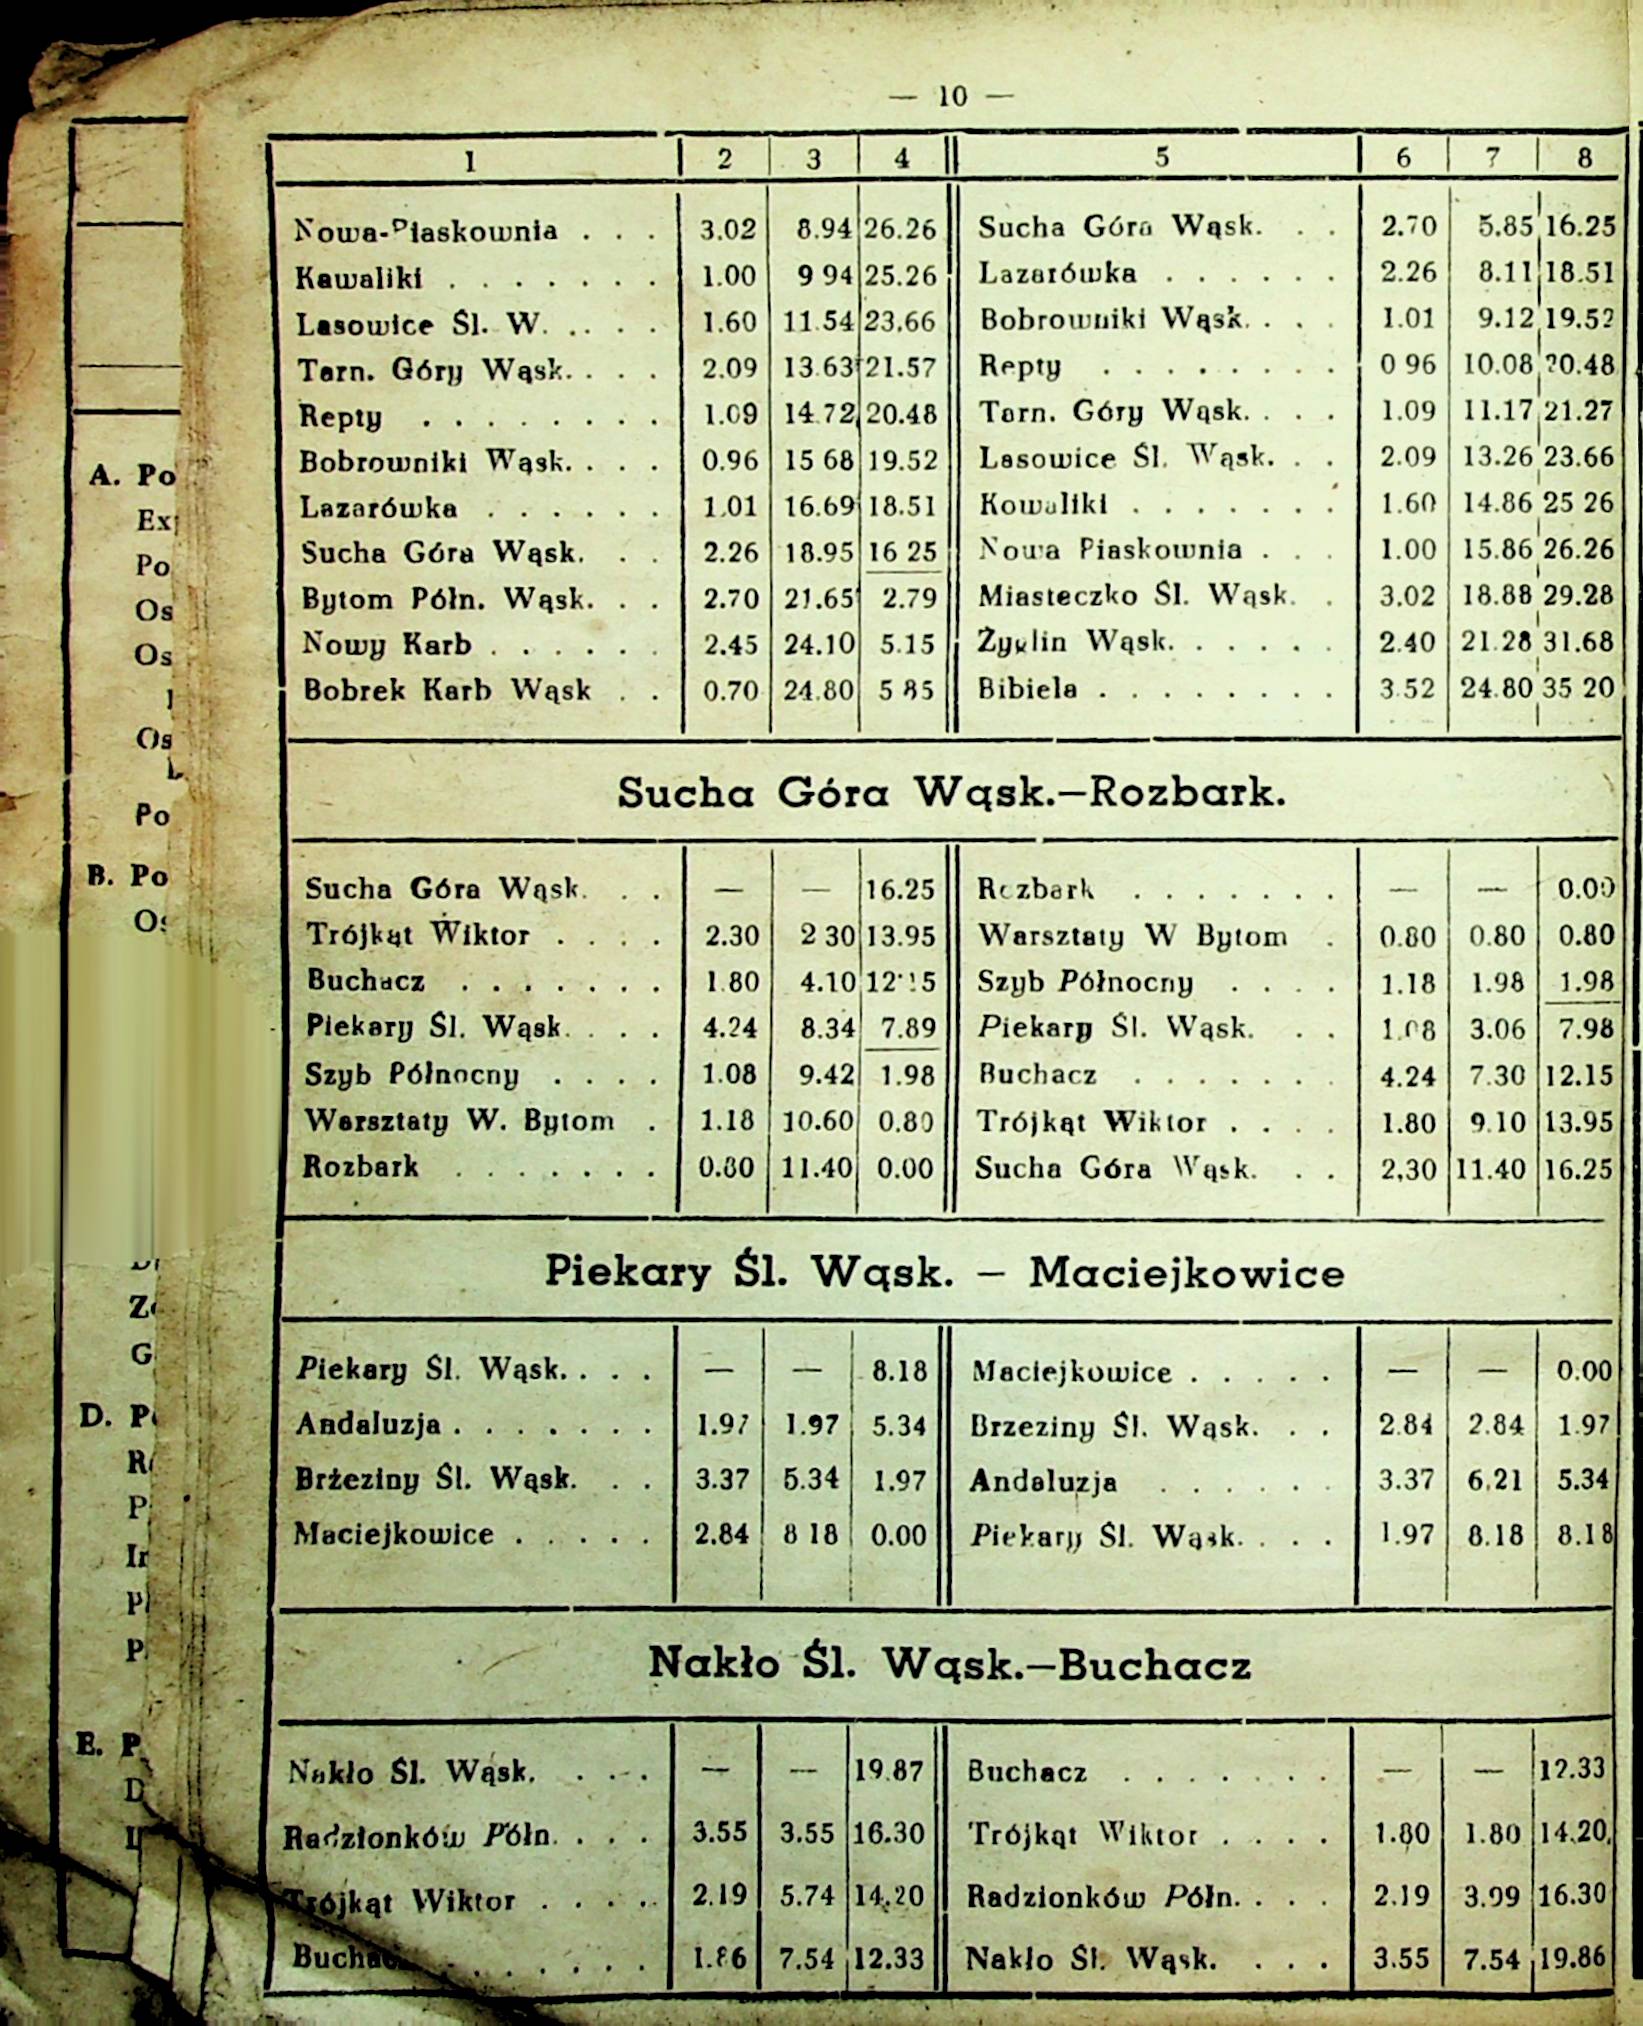 — 10 —
1 2 3 4 5 6 7 8
Nowa-Piaskownia . . . 3.02 8.94 26.26 Sucha Góra Wąsk. . . 2.70 5.85 16.25
Kawaliki . . . . . . . 1.00 9 94 25.26 Lazarówka . . . . . . 2.26 8.11 18.51
Lasowice Śl. W. . . . . 1.60 11.54 23.66 Bobrowniki Wąsk. . . . 1.01 9.12 19.52
Tarn. Góry Wąsk. . . . 2.09 13.63 21.57 Repty . . . . . . . . 0 96 10.08 20.48
Repty . . . . . . . . 1.09 14.72 20.48 Tarn. Góry Wąsk. . . . 1.09 11.17 21.27
Bobrowniki Wąsk. . . . 0.96 15 68 19.52 Lasowice Śl. Wąsk. . . 2.09 13.26 23.66
Lazarówka . . . . . . 1.01 16.69 18.51 Kowaliki . . . . . . . 1.60 14.86 25 26
Sucha Góra Wąsk. . . 2.26 18.95 16 25 Nowa Piaskownia . . . 1.00 15.86 26.26
Bytom Półn. Wąsk. . . 2.70 21.65 2.79 Miasteczko Śl. Wąsk. . 3.02 18.88 29.28
Nowy Karb . . . . . . 2.45 24.10 5.15 Żyglin Wąsk. . . . . . 2.40 21.28 31.68
Bobrek Karb Wąsk . . 0.70 24.80 5 85 Bibiela . . . . . . . . 3.52 24.80 35 20
Sucha Góra Wąsk.—Rozbark.
Sucha Góra Wąsk. . . — — 16.25 Rozbark . . . . . . . — — 0.00
Trójkąt Wiktor . . . . 2.30 2 30 13.95 Warsztaty W Bytom . 0.80 0.80 0.80
Buchacz . . . . . . . 1.80 4.10 12.15 Szyb Północny . . . . 1.18 1.98 1.98
Piekary Śl. Wąsk. . . . 4.24 8.34 7.89 Piekary Śl. Wąsk. . . 1.08 3.06 7.98
Szyb Północny . . . . 1.08 9.42 1.98 Buchacz . . . . . . . 4.24 7.30 12.15
Warsztaty W. Bytom . 1.18 10.60 0.80 Trójkąt Wiktor . . . . 1.80 9.10 13.95
Rozbark . . . . . . . 0.80 11.40 0.00 Sucha Góra Wąsk. . . 2,30 11.40 16.25
Piekary Śl. Wąsk. — Maciejkowice
Piekary Śl. Wąsk. . . . — — 8.18 Maciejkowice . . . . . — — 0.00
Andaluzja . . . . . . . 1.97 1.97 5.34 Brzeziny Śl. Wąsk. . . 2.84 2.84 1.97
Brzeziny Śl. Wąsk. . . 3.37 5.34 1.97 Andaluzja . . . . . . 3.37 6.21 5.34
Maciejkowice . . . . . 2.84 8 18 0.00 Piekary Śl. Wąsk. . . . 1.97 8.18 8.18
Nakło Śl. Wąsk.—Buchacz
Nakło Śl. Wąsk. . . . — — 19.87 Buchacz . . . . . . . — — 12.33
Radzionków Półn. . . . 3.55 3.55 16.30 Trójkąt Wiktor . . . . 1.80 1.80 14.20
Trójkąt Wiktor . . . . . 2.19 5.74 14.20 Radzionków Półn. . . . 2.19 3.99 16.30
Buchac . . . . . . 1.86 7.54 12.33 Nakło Śl. Wąsk. . . . 3.55 7.54 19.86
A. Po
Ex
Po
Os
Os
Os
Po
B. Po
Z
G
D. P
P
P
P
E. P
D